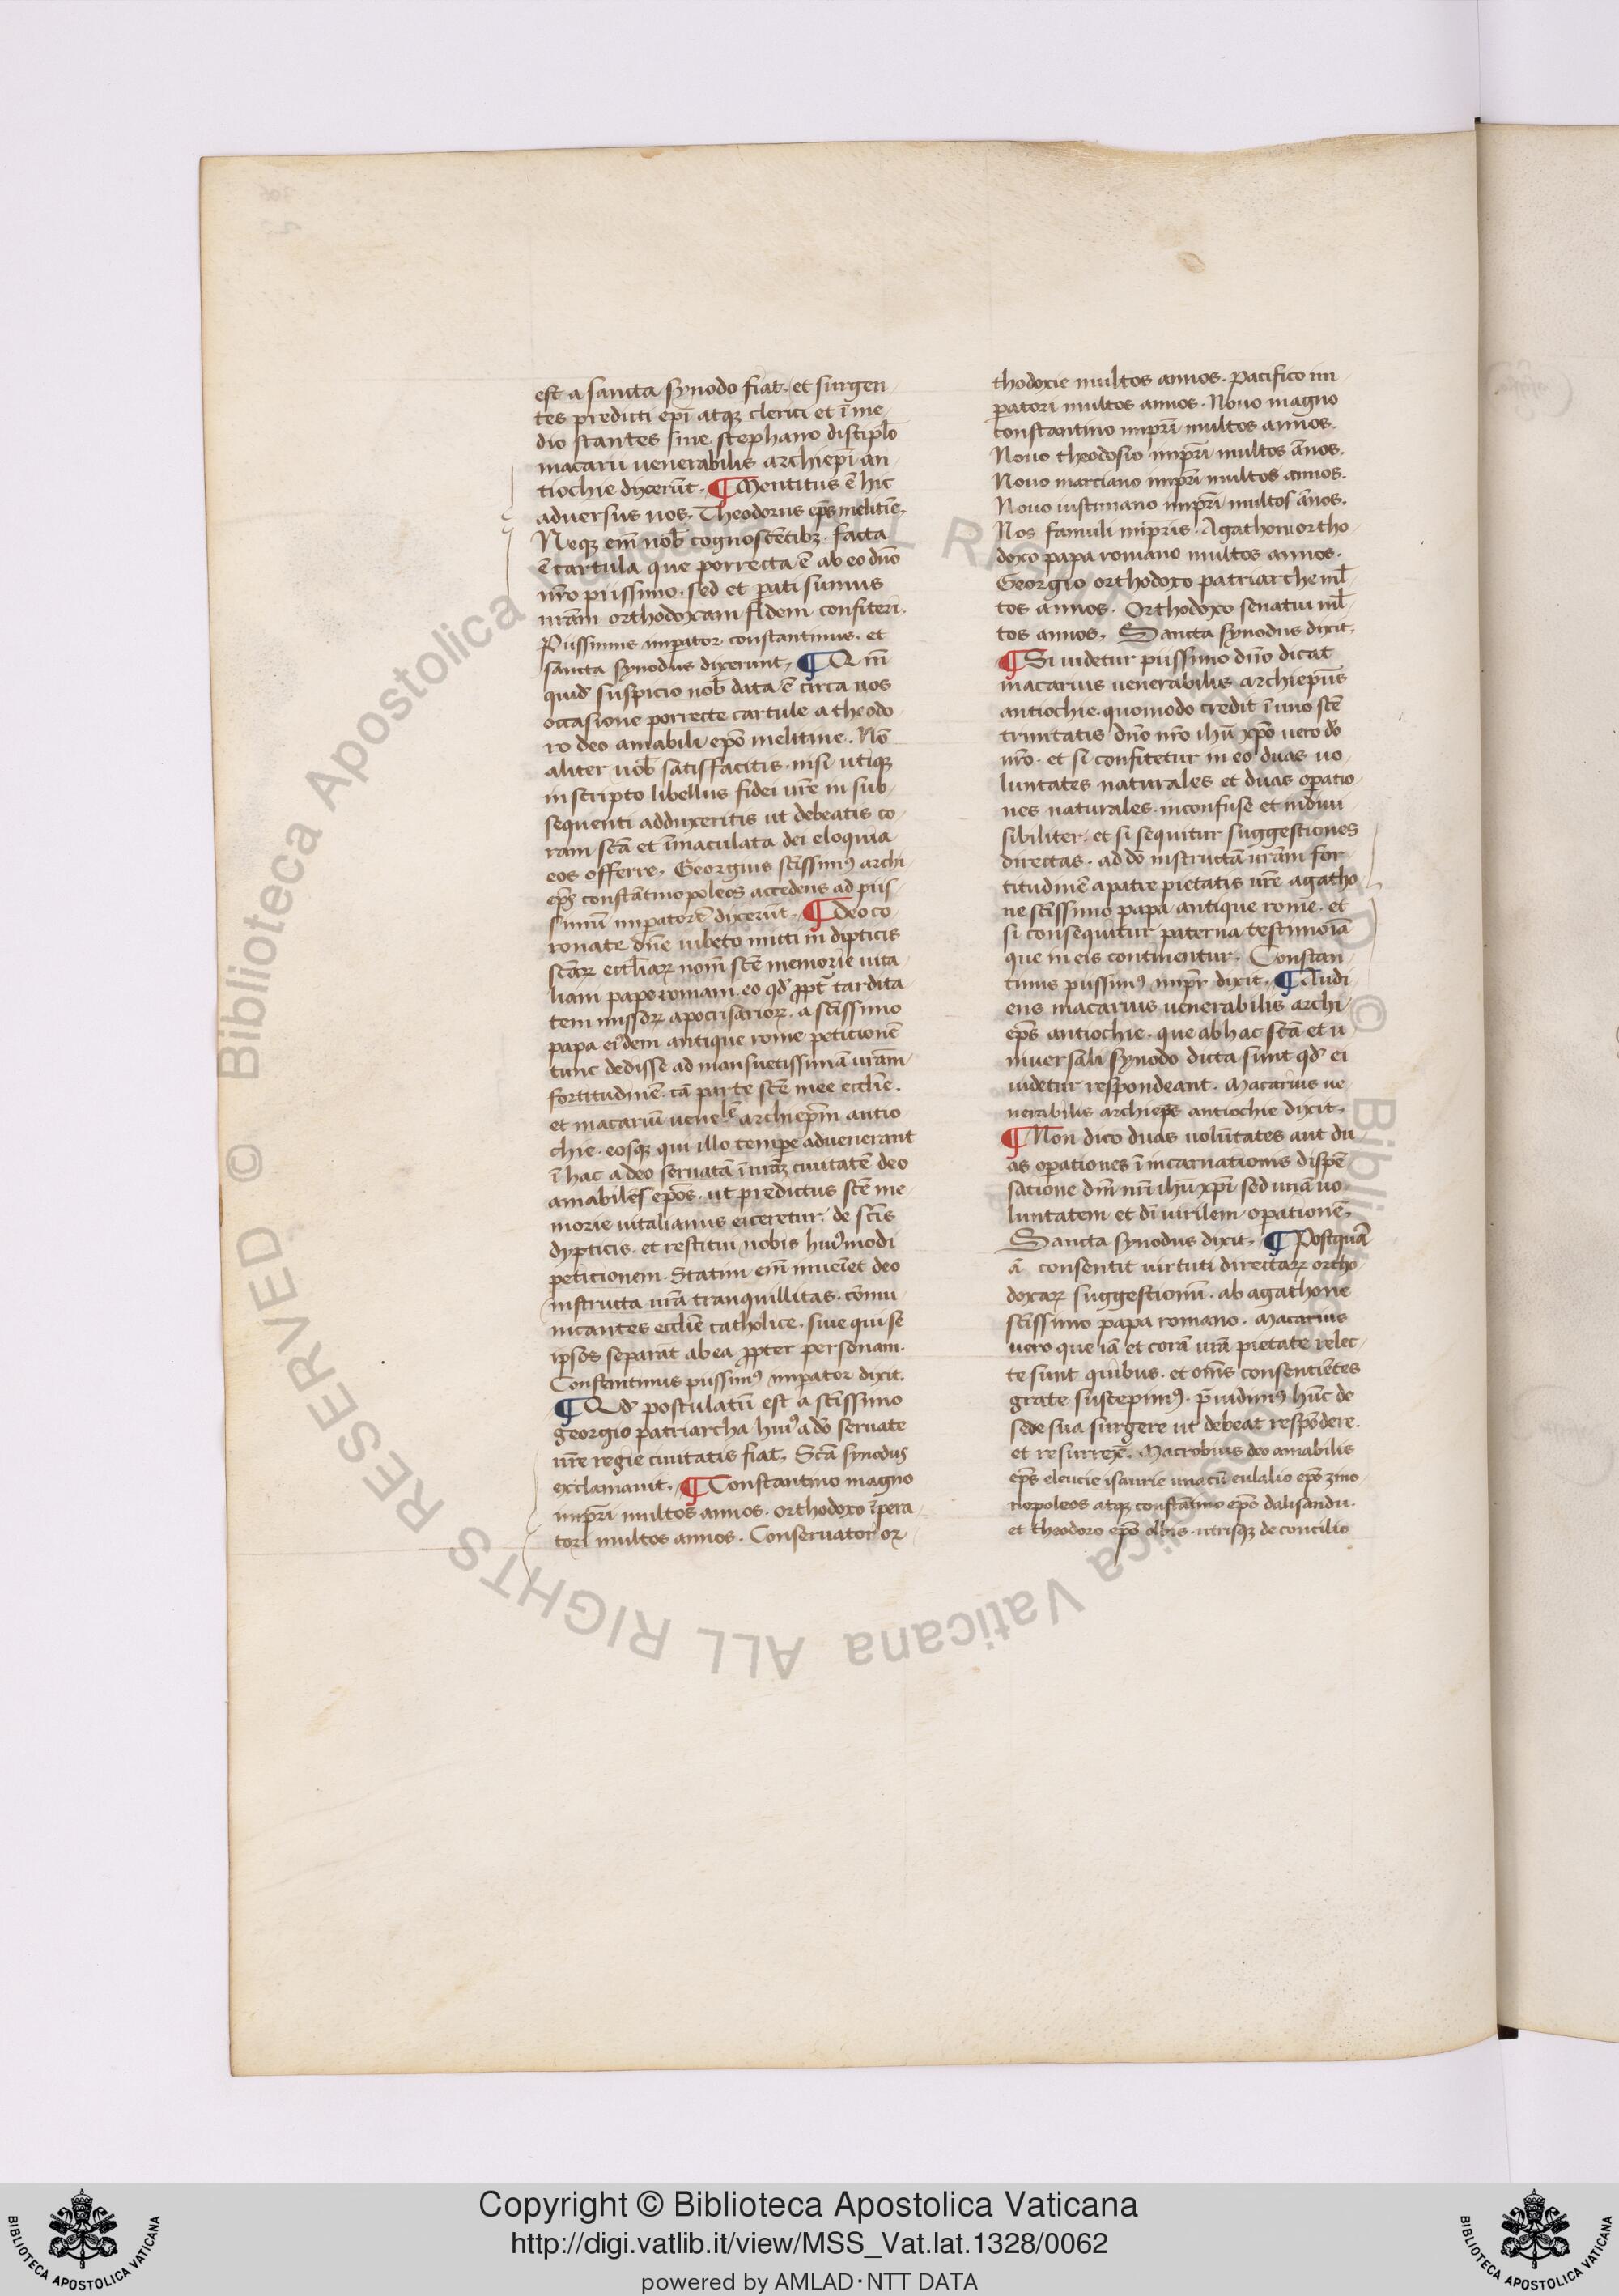 est a sancta synodo fiat. et surgen
tes predicti ep̄i atqꝫ clerici et ī me
dio stantes sine stephano discipl̄o
macarii uenerabilis archiep̄i an
tiochie dixerūt. ¶ Mentitus ē hic
aduersus nos. Theodorus ep̄s melitīe.
Neqꝫ em̄ nob̄ cognoscētibꝫ. facta
ē cartula que porrecta ē ab eo dn̄o
nr̄o piissimo. sed et ꝑati sumus
nr̄am orthodoxam fidem confiteri.
Piissimus imꝑator constantinus. et
sancta synodus dixerunt. ¶ Qm̄
quid̄ suspicio nob̄ data ē circa uos
occasione porrecte cartule a theodo
ro deo amabili ep̄o melitine. Nō
aliter nob̄ satisfacitis. nisi utiqꝫ
in scripto libellus fidei ur̄e in sub
sequenti adduxeritis ut debeatis co
ram sc̄a et īmaculata dei eloquia
eos offerre. Georgius sc̄issimꝰ archi
ep̄s constātinopoleos accedens ad piis
simū imꝑatorē dixerūt. ¶ A deo co
ronate dn̄e iubeto mitti in dipticis
sc̄aꝝ eccl̄iaꝝ nom̄ sc̄e memorie uita
liani pape romani. eo qd̄ ꝓpt̄ tardita
tem missoꝝ apocrisarioꝝ. a sc̄issimo
papa eiꝰdem antique rome peticionē
tunc dedisse ad mansuetissimā ur̄am
fortitudinē. tā parte sc̄e mee eccl̄ie.
et macariū uenelē archiep̄m antio
chie. eosqꝫ qui illo tempe aduenerant
ī hac a deo seruatā ī ur̄aꝫ ciuitatē deo
amabiles ep̄os. ut predictus sc̄e me
morie uitalianus eiceretur. de sc̄is
dypticis. et restitui nobis huiꝰmodi
peticionem. Statim em̄ inueīet deo
instructa ur̄a tranquillitas. cōmu
nicantes eccl̄ie catholice. siue qui se
ipsos separāt ab ea ꝓpter personam.
Constantinus piissimꝰ imꝑator dixit.
¶ Qd̄ postulatū est a sc̄issimo
georgio patriarcha huiꝰ a dō seruate
ur̄e regie ciuitatis fiat. Sc̄a synodus
exclamauit. ¶ Constantino magno
impr̄i multos annos. orthodoxo īpera
tori multos annos. Conseruatori or
thodoxie multos annos. Pacifico im
ꝑatori multos annos. Nouo magno
constantino impr̄i multos annos.
Nouo theodosio impr̄i multos ānos.
Nouo marciano impr̄i multos annos.
Nouo iustiniano impr̄i multos ānos.
Nos famuli impr̄is. Agathoni ortho
doxo papa romano multos annos.
Georgio orthodoxo patriarche ml̄
tos annos. Orthodoxo senatui ml̄
tos annos. Sancta synodus dixit.
¶ Si uidetur piissimo dn̄o dicat
macarius uenerabilis archiep̄us
antiochie. quomodo credit ī uno sc̄e
trinitatis dn̄o nr̄o ihū xp̄o uero dō
nr̄o. et si confitetur in eo duas uo
luntates naturales et duas oꝑatio
nes naturales. inconfuse et indiui
sibiliter. et si sequitur suggestiones
directas. ad dō instructā ur̄am for
titudinē a patre pietatis ur̄e agatho
ne sc̄issimo papa antique rome. et
si consequitur paterna testimōia
que in eis continentur. Constan
tinus piissimꝰ impr̄ dixit. ¶ Audi
ens macarius uenerabilis archi
ep̄s antiochie. que ab hac sc̄a et u
niuersali synodo dicta sunt qd̄ ei
uidetur respondeant. Macarius ue
nerabilis archiep̄s antiochie dixit.
¶ Non dico duas uolūtates aut du
as oꝑationes ī incarnationis dispē
satione dn̄i nr̄i ihū xp̄i sed unā uo
luntatem et dī uirilem oꝑationē.
Sancta synodus dixit. ¶ Postquā
ā consentit uirtuti directaꝝ ortho
doxaꝝ suggestionū. ab agathone
sc̄issimo papa romano. Macarius
uero que iā et corā ur̄a pietate relec
te sunt quibus. et om̄s consentiētes
grate suscepimꝰ. p̄uidimꝰ hūc de
sede sua surgere ut debeat respōdere.
et resurrex̄. Macrobius deo amabilis
ep̄s eleucie isaurie una cū eulalio ep̄o zino
nopoleos atqꝫ constātino ep̄o dalisandu.
et theodoro ep̄o olbis. utrisqꝫ de concilio
Copyright © Biblioteca Apostolica Vaticana
http://digi.vatlib.it/view/MSS_Vat.lat.1328/0062
powered by AMLAD·NTT DATA
BIBLIOTECA APOSTOLICA VATICANA
BIBLIOTECA APOSTOLICA VATICANA
© Biblioteca Apostolica Vaticana ALL RIGHTS RESERVED
© Biblioteca Apostolica Vaticana ALL RIGHTS RESERVED